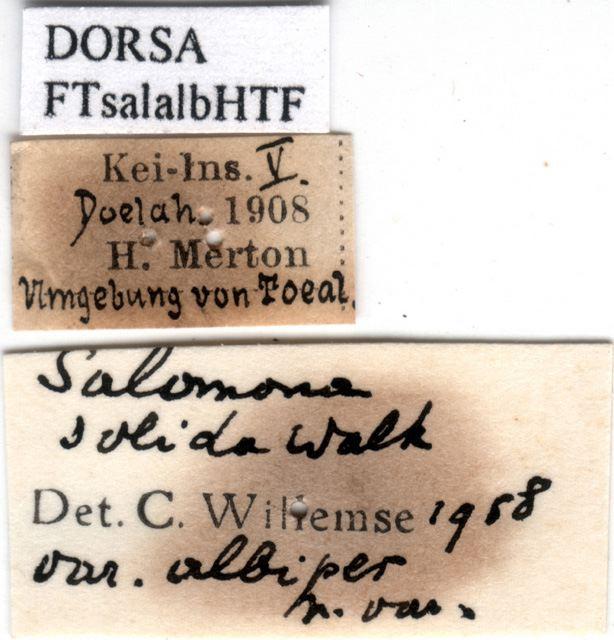 DORSA
FTsalalbHTF
Kei-Ins. V.
Doelah. 1908
H. Merton
Umgebung von Toeal.
Salomona
solida Walk
Det. C. Willemse 1958
var. albiper
n. var.